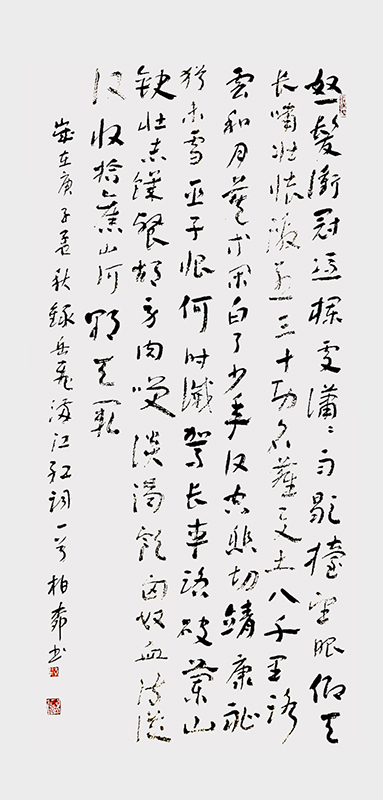 怒髮衝冠憑欄處瀟瀟雨歇擡望眼仰天
長嘯壯懷激烈三十功名塵與土八千里路
雲和月莫等閑白了少年頭空悲切靖康恥
猶未雪臣子恨何時滅駕長車踏破蘭山
缺壯志饑餐胡虜肉笑談渴飲匈奴血待從
頭收拾舊山河朝天闕
歲在庚子孟秋錄岳飛滿江紅詞一首柏希书